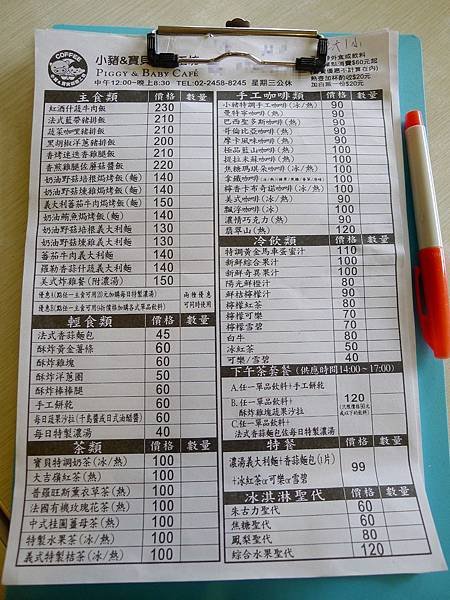 COFFEE
小豬&寶貝
PIGGY & BABY CAFÉ
中午12:00~晚上8:30 TEL:02-2458-8245 星期三公休
外盒或飲料
點消費$60元起
優惠不計算在內)
熱壺加杯酌收$20元
加白飯一份$20元
主食類 價格 數量
紅酒什蔬牛肉飯 230
法式藍帶豬排飯 210
蔬菜咖哩豬排飯 200
黑胡椒洋蔥豬排飯 200
香烤迷迭香雞腿飯 210
香煎雞腿佐蘑菇醬飯 220
奶油野菇培根焗烤飯(麵) 140
奶油野菇燻雞焗烤飯(麵) 140
義大利蕃茄牛肉焗烤飯(麵) 150
奶油鮪魚焗烤飯(麵) 140
奶油野菇培根義大利麵 130
奶油野菇燻雞義大利麵 130
蕃茄牛肉義大利麵 140
羅勒香蒜什蔬義大利麵 140
美式炸雞餐(附濃湯) 150
優惠A(點任一主食可用20元加購每日特製濃湯)
兩種優惠
可同時使用
輕食類 價格 數量
法式香蒜麵包 45
酥炸黃金薯條 60
酥炸雞塊 60
酥炸洋蔥圈 50
酥炸棒棒腿 60
手工餅乾 60
每日蔬果沙拉(千島醬或日式油醋醬) 60
每日特製濃湯 40
茶類 價格 數量
寶貝特調奶茶(冰/熱) 100
大吉嶺紅茶(熱) 100
普羅旺斯薰衣草茶(熱) 100
法國有機玫瑰花茶(熱) 100
中式桂圓薑母茶(熱) 100
特製水果茶(冰/熱) 100
義式特製桔茶(冰/熱) 100
手工咖啡類 價格 數量
小豬特調手工咖啡(冰/熱) 90
曼特寧咖啡(熱) 90
巴西聖多斯咖啡(熱) 90
哥倫比亞咖啡(熱) 90
摩卡風味咖啡(熱) 90
極品藍山咖啡(熱) 100
提拉米蘇咖啡(熱) 100
焦糖瑪琪朵咖啡(冰/熱) 100
100
檸香卡布奇諾咖啡(冰/熱) 100
美式咖啡(冰/熱) 90
飄浮咖啡(冰) 100
濃情巧克力(熱) 90
翡翠山(熱) 120
冷飲類 價格 數量
特調黃金馬車蛋蜜汁 110
新鮮綜合果汁 100
新鮮奇異果汁 100
陽光鮮橙汁 80
鮮桔檸檬汁 90
檸檬紅茶 80
檸檬可樂 70
檸檬雪碧 70
白牛 80
冰紅茶 50
可樂/雪碧 40
下午茶套餐 (供應時間14:00~17:00)
A.任一單品飲料+手工餅乾
B.任一單品飲料/
酥炸雞塊蔬果沙拉
C.任一單品飲料/
法式香蒜麵包佐每日特製濃湯
120
特餐 價格 數量
濃湯義大利麵+香蒜麵包(1片)
+冰紅茶or可樂or雪碧
99
冰淇淋聖代 價格 數量
朱古力聖代 60
焦糖聖代 60
鳳梨聖代 80
綜合水果聖代 120